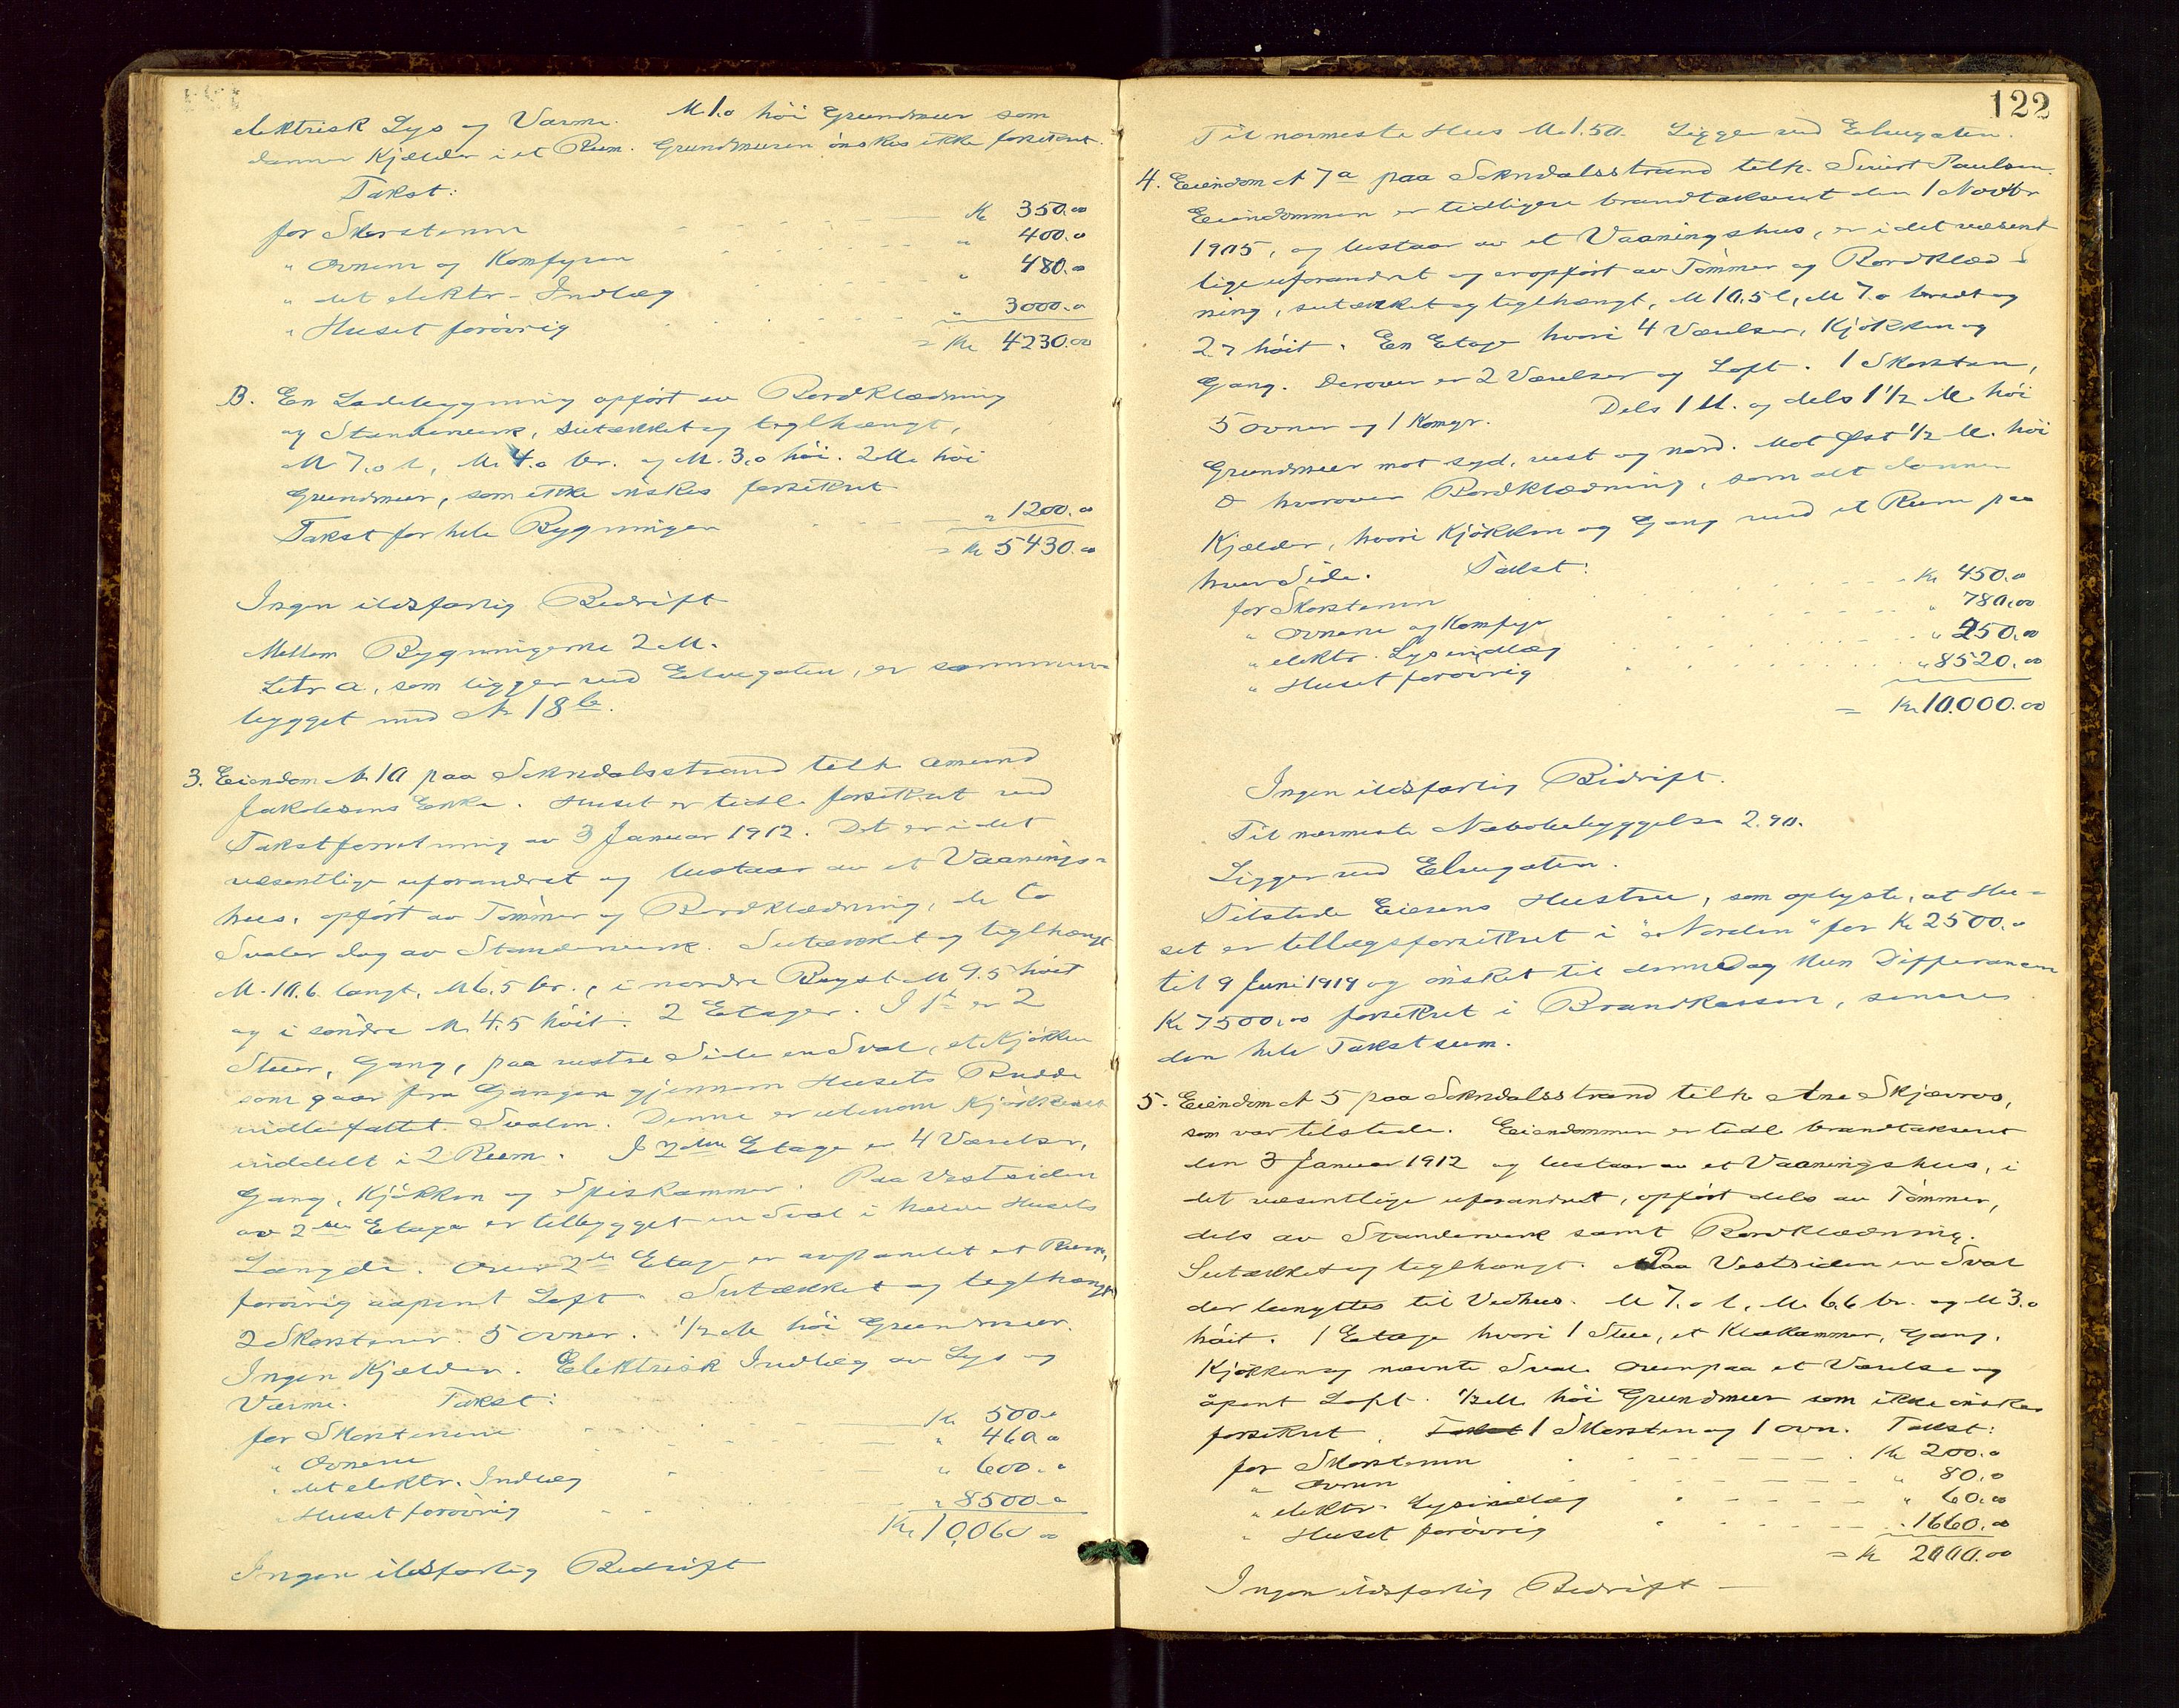 elektrisk Lys og Varme. M. 1.0 höi Grundmur som
danner Kjælder i et Rum. Grundmuren önskes ikke forsikret.
Takst:
for Skorstenen Kr 350.00
" Ovnene og Komfyren " 400.00
" det elektr. Indlæg " 480.00
" Huset forövrig " 3000.00
= Kr 4230.00
B. En Ladebygning opfört av Bordklædning
og Standerverk, sutækket og teglhængt,
M 7.0 l, M. 4.0 br. og M. 3.0 höi. 2 M. höi
Grundmur, som ikke önskes forsikret
Takst for hele Bygningen " 1200.00
= Kr 5430.00
Ingen ildsfarlig Bedrift
Mellem Bygningerne 2 M.
Litr a, som ligger ved Elvegaten, er sammen-
bygget med № 18 b.
3. Eiendom № 10 paa Sokndalsstrand tilh. Amund
Jakobsens Enke. Huset er tidl. forsikret ved
Takstforretning av 3 Januar 1912. Det er i det
væsentlige uforandret og bestaar av et Vaanings-
hus, opfört av Tömmer og Bordklædning, de to
Svaler dog av Standerverk. Sutækket og teglhængt
M. 10.6 langt, M 6.5 br., i nordre Bryst M 9.5 höit
og i söndre M. 4.5 höit. 2 Etager. I 1ste er 2
Stuer, Gang, paa vestre Side en Sval, et Kjökken
som gaar fra Gangen gjennem Husets Bredde
indbefattet Svalen. Denne er utenom Kjökkenet
inddelt i 2 Rum. I 2den Etage er 4 Værelser,
Gang, Kjökken og Spiskammer. Paa Vestsiden
av 2den Etage er tilbygget en Sval i halve Husets
Længde. Over 2den Etage er avpanelet et Rum,
forövrig aapent Loft. Sutækket og teglhængt
2 Skorstener. 5 Ovner. 1/2 M höi Grundmur.
Ingen Kjælder. Elektrisk Indlæg av Lys og
Varme. Takst:
for Skorstenene Kr 500.0
" Ovnene " 460.0
" det elektr. Indlæg " 600.0
" Huset forövrig " 8500.0
Kr 10,060.00
Ingen ildsfarlig Bedrift
122
Til nærmeste Hus M. 1.50. Ligger ved Elvegaten.
4. Eiendom № 7a paa Sokndalsstrand tilh. Sivert Paulsen.
Eiendommen er tidligere brandtaksert den 1 Novbr
1905, og bestaar av et Vaaningshus, er i det væsent
lige uforandret og er opfört av Tömmer og Bordklæd-
ning, sutækket og teglhængt, M 10.5 l, M 7.0 bredt og
2.7 höit. En Etage hvori 4 Værelser, Kjökken og
Gang. Derover er 2 Værelser og Loft. 1 Skorsten,
5 Ovner og 1 Komfyr. Dels 1 M. og dels 1 1/2 M. höi
Grundmur mot syd, vest og nord. Mot Øst 1/2 M. höi
D hvorover Bordklædning, som alt danner
Kjælder, hvori Kjökken og Gang med et Rum paa
hver Side. Takst:
for Skorstenen Kr 450.0
" Ovnene og Komfyr " 780.00
" elektr. Lysindlæg " 250.00
" Huset forövrig " 8520.00
= Kr 10.000.00
Ingen ildsfarlig Bedrift.
Til nærmeste Nabobebyggelse 2.90.
Ligger ved Elvegaten.
Tilstede Eierens Hustru, som oplyste, at Hu-
set er tillægsforsikret i "Norden" for Kr 2500.0
til 9 Juni 1919 og önsket til denne Dag kun Differansen
Kr 7500.00 forsikret i Brandkassen, senere
den hele Takstsum.
5. Eiendom № 5 paa Sokndalsstrand tilh. Ane Skjævros,
som var tilstede. Eiendommen er tidl brandtaksert
den 3 Januar 1912 og bestaar av et Vaaningshus, i
det væsentlige uforandret, opfört dels av Tömmer,
dels av Standerverk samt Bordklædning.
Sutækket og teglhængt. Paa Vestsiden en Sval
der benyttes til Vedhus. M 7.0 l, M. 6.6 br. og M 3.0
höit. 1 Etage hvori 1 Stue, et Klækammer, Gang,
Kjökken og nævnte Sval. Ovenpaa et Værelse og
åpent Loft. 1/2 M. höi Grundmur som ikke önskes
forsikret. Takst 1 Skorsten og 1 Ovn. Takst:
for Skorstenen Kr 200.0
" Ovnen " 80.0
" elektr. Lysindlæg " 60.00
" Huset forövrig " 1660.00
= Kr 2000.00
Ingen ildsfarlig Bedrift —